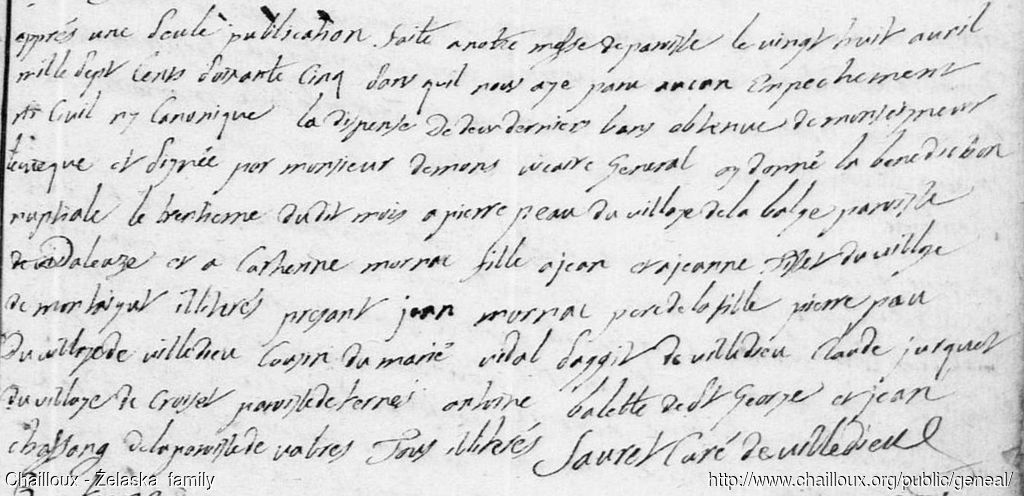 apprés une seule publication faite a notre messe de paroisse le vingt huit avril
mille sept cents soixante cinq sans quil nous aye paru aucun Empechement
Civil ny Canonique la dispense de deux derniers bans obtenue de monseigneur
leveque et signée par monsieur demons vicaire General ay donné la benediction
nuptiale le trentieme dudit mois a pierre peau du village de la balge paroisse
de et a Catherine mornac fille a jean et a jeanne du village
de montaigut illiterés presant jean mornac pere de la fille pierre pau
du village de villedieu Cousin du marié vidal daggit de villedieu Claude jurquet
du village de Croiset paroisse de ternes antoine balette de st George et jean
chassang de la paroisse de vabres Tous illiterés Sauret Curé de villedieu
Chailloux - Żelaska family
http://www.chailloux.org/public/geneal/